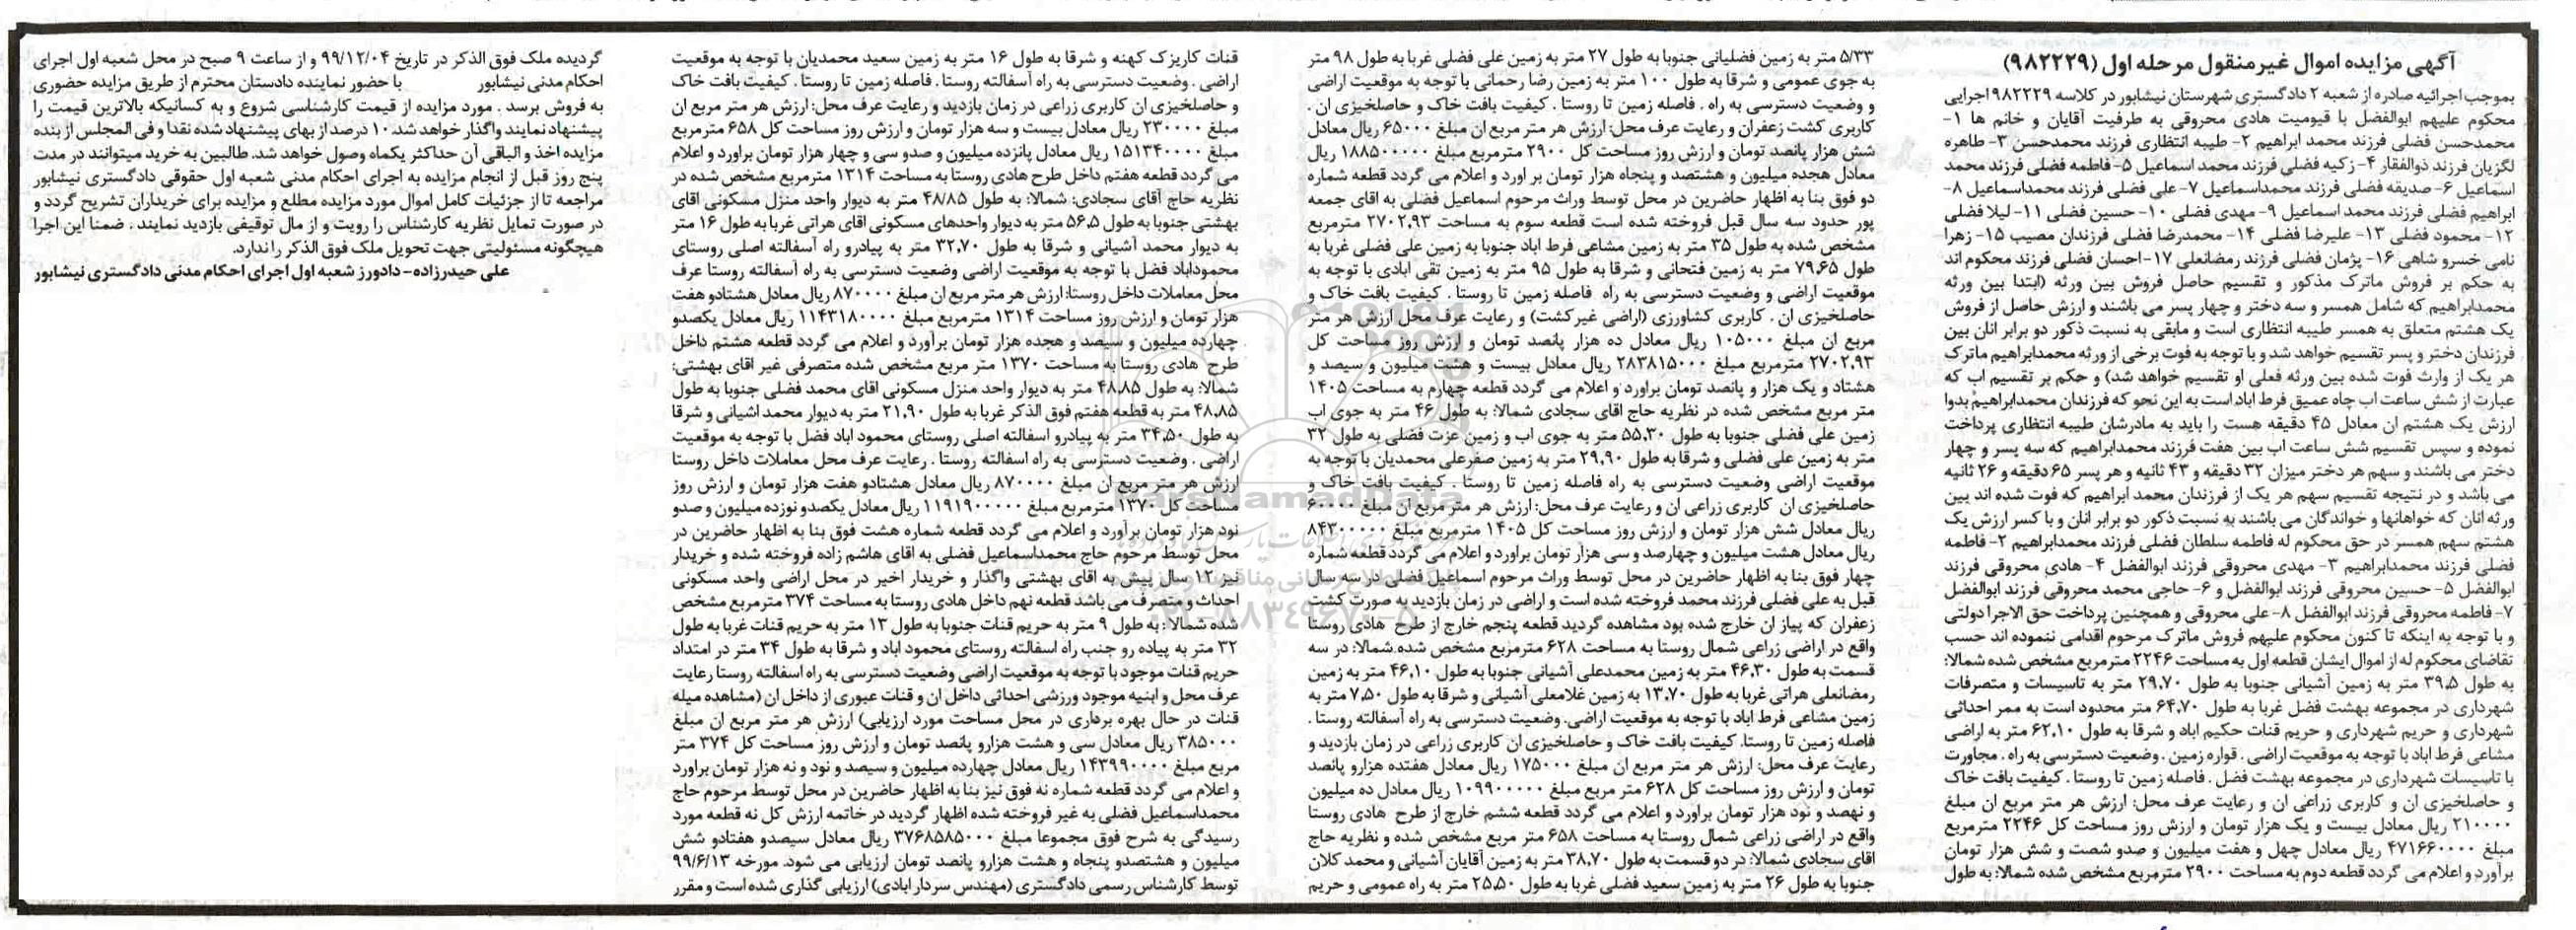 آگهی مزایده اموال غیرمنقول مرحله اول (۹۸۲۲۲۹)
بموجب اجرائیه صادره از شعبه ۲ دادگستری شهرستان نیشابور در کلاسه ۹۸۲۲۲۹ اجرایی
محکوم علیهم ابوالفضل با قیومیت هادی محروقی به طرفیت آقایان و خانم ها ۱-
محمدحسن فضلی فرزند محمد ابراهیم ۲- طیبه انتظاری فرزند محمدحسن ۳- طاهره
لگزیان فرزند ذوالفقار ۴- زکیه فضلی فرزند محمد اسماعیل ۵- فاطمه فضلی فرزند محمد
اسماعیل ۶- صدیقه فضلی فرزند محمداسماعیل ۷- علی فضلی فرزند محمداسماعیل ۸-
ابراهیم فضلی فرزند محمد اسماعیل ۹- مهدی فضلی ۱۰- حسین فضلی ۱۱- لیلا فضلی
۱۲- محمود فضلی ۱۳- علیرضا فضلی ۱۴- محمدرضا فضلی فرزندان مصیب ۱۵- زهرا
نامی خسرو شاهی ۱۶- پژمان فضلی فرزند رمضانعلی ۱۷- احسان فضلی فرزند محکوم اند
به حکم بر فروش ماترک مذکور و تقسیم حاصل فروش بین ورثه (ابتدا بین ورثه
محمدابراهیم که شامل همسر و سه دختر و چهار پسر می باشند و ارزش حاصل از فروش
یک هشتم متعلق به همسر طیبه انتظاری است و مابقی به نسبت ذکور دو برابر انان بین
فرزندان دختر و پسر تقسیم خواهد شد و با توجه به فوت برخی از ورثه محمدابراهیم ماترک
هر یک از وارث فوت شده بین ورثه فعلی او تقسیم خواهد شد) و حکم بر تقسیم اب که
عبارت از شش ساعت اب چاه عمیق فرط اباد است به این نحو که فرزندان محمدابراهیم بدوا
ارزش یک هشتم ان معادل ۴۵ دقیقه هست را باید به مادرشان طیبه انتظاری پرداخت
نموده و سپس تقسیم شش ساعت اب بین هفت فرزند محمدابراهیم که سه پسر و چهار
دختر می باشند و سهم هر دختر میزان ۳۲ دقیقه و ۴۳ ثانیه و هر پسر ۶۵ دقیقه و ۲۶ ثانیه
می باشد و در نتیجه تقسیم سهم هر یک از فرزندان محمد ابراهیم که فوت شده اند بین
ورثه انان که خواهانها و خواندگان می باشند به نسبت ذکور دو برابر انان و با کسر ارزش یک
هشتم سهم همسر در حق محکوم له فاطمه سلطان فضلی فرزند محمدابراهیم ۲- فاطمه
فضلی فرزند محمدابراهیم ۳- مهدی محروقی فرزند ابوالفضل ۴- هادی محروقی فرزند
ابوالفضل ۵- حسین محروقی فرزند ابوالفضل و ۶- حاجی محمد محروقی فرزند ابوالفضل
۷- فاطمه محروقی فرزند ابوالفضل ۸- علی محروقی و همچنین پرداخت حق الاجرا دولتی
و با توجه به اینکه تا کنون محکوم علیهم فروش ماترک مرحوم اقدامی ننموده اند حسب
تقاضای محکوم له از اموال ایشان قطعه اول به مساحت ۲۲۴۶ مترمربع مشخص شده شمالا:
به طول ۳۹.۵ متر به زمین آشیانی جنوبا به طول ۲۹.۷۰ متر به تاسیسات و متصرفات
شهرداری در مجموعه بهشت فضل غربا به طول ۶۴.۷۰ متر محدود است به ممر احداثی
شهرداری و حریم شهرداری و حریم قنات حکیم اباد و شرقا به طول ۶۲.۱۰ متر به اراضی
مشاعی فرط اباد با توجه به موقعیت اراضی . قواره زمین . وضعیت دسترسی به راه . مجاورت
با تاسیسات شهرداری در مجموعه بهشت فضل . فاصله زمین تا روستا . کیفیت بافت خاک
و حاصلخیزی ان و کاربری زراعی ان و رعایت عرف محل: ارزش هر متر مربع ان مبلغ
۲۱۰۰۰۰ ریال معادل بیست و یک هزار تومان و ارزش روز مساحت کل ۲۲۴۶ مترمربع
مبلغ ۴۷۱۶۶۰۰۰۰ ریال معادل چهل و هفت میلیون و صدو شصت و شش هزار تومان
برآورد و اعلام می گردد قطعه دوم به مساحت ۲۹۰۰ مترمربع مشخص شده شمالا: به طول
۵/۳۳ متر به زمین فضلیانی جنوبا به طول ۲۷ متر به زمین علی فضلی غربا به طول ۹۸ متر
به جوی عمومی و شرقا به طول ۱۰۰ متر به زمین رضا رحمانی با توجه به موقعیت اراضی
و وضعیت دسترسی به راه . فاصله زمین تا روستا . کیفیت بافت خاک و حاصلخیزی ان .
کاربری کشت زعفران و رعایت عرف محل: ارزش هر متر مربع ان مبلغ ۶۵۰۰۰ ریال معادل
شش هزار پانصد تومان و ارزش روز مساحت کل ۲۹۰۰ مترمربع مبلغ ۱۸۸۵۰۰۰۰۰ ریال
معادل هجده میلیون و هشتصد و پنجاه هزار تومان بر اورد و اعلام می گردد قطعه شماره
دو فوق بنا به اظهار حاضرین در محل توسط وراث مرحوم اسماعیل فضلی به اقای جمعه
پور حدود سه سال قبل فروخته شده است قطعه سوم به مساحت ۲۷۰۲.۹۳ مترمربع
مشخص شده به طول ۳۵ متر به زمین مشاعی فرط اباد جنوبا به زمین علی فضلی غربا به
طول ۷۹.۶۵ متر به زمین فتحانی و شرقا به طول ۹۵ متر به زمین تقی ابادی با توجه به
موقعیت اراضی و وضعیت دسترسی به راه فاصله زمین تا روستا . کیفیت بافت خاک و
حاصلخیزی ان . کاربری کشاورزی (اراضی غیرکشت) و رعایت عرف محل ارزش هر متر
مربع ان مبلغ ۱۰۵۰۰۰ ریال معادل ده هزار پانصد تومان و ارزش روز مساحت کل
۲۷۰۲.۹۳ مترمربع مبلغ ۲۸۳۸۱۵۰۰۰ ریال معادل بیست و هشت میلیون و سیصد و
هشتاد و یک هزار و پانصد تومان براورد و اعلام می گردد قطعه چهارم به مساحت ۱۴۰۵
متر مربع مشخص شده در نظریه حاج اقای سجادی شمالا: به طول ۴۶ متر به جوی اب
زمین علی فضلی جنوبا به طول ۵۵.۳۰ متر به جوی اب و زمین عزت فضلی به طول ۳۲
متر به زمین علی فضلی و شرقا به طول ۲۹.۹۰ متر به زمین صفرعلی محمدیان با توجه به
موقعیت اراضی وضعیت دسترسی به راه فاصله زمین تا روستا . کیفیت بافت خاک و
حاصلخیزی ان کاربری زراعی ان و رعایت عرف محل: ارزش هر متر مربع ان مبلغ ۶۰۰۰۰
ریال معادل شش هزار تومان و ارزش روز مساحت کل ۱۴۰۵ مترمربع مبلغ ۸۴۳۰۰۰۰۰
ریال معادل هشت میلیون و چهارصد و سی هزار تومان براورد و اعلام می گردد قطعه شماره
چهار فوق بنا به اظهار حاضرین در محل توسط وراث مرحوم اسماعیل فضلی در سه سال
قبل به علی فضلی فرزند محمد فروخته شده است و اراضی در زمان بازدید به صورت کشت
زعفران که پیاز ان خارج شده بود مشاهده گردید قطعه پنجم خارج از طرح هادی روستا
واقع در اراضی زراعی شمال روستا به مساحت ۶۲۸ مترمربع مشخص شده.شمالا: در سه
قسمت به طول ۴۶.۳۰ متر به زمین محمدعلی آشیانی جنوبا به طول ۴۶.۱۰ متر به زمین
رمضانعلی هراتی غربا به طول ۱۳.۷۰ به زمین غلامعلی آشیانی و شرقا به طول ۷.۵۰ متر به
زمین مشاعی فرط اباد با توجه به موقعیت اراضی. وضعیت دسترسی به راه آسفالته روستا .
فاصله زمین تا روستا. کیفیت بافت خاک و حاصلخیزی ان کاربری زراعی در زمان بازدید و
رعایت عرف محل: ارزش هر متر مربع ان مبلغ ۱۷۵۰۰۰ ریال معادل هفتده هزارو پانصد
تومان و ارزش روز مساحت کل ۶۲۸ متر مربع مبلغ ۱۰۹۹۰۰۰۰۰ ریال معادل ده میلیون
و نهصد و نود هزار تومان براورد و اعلام می گردد قطعه ششم خارج از طرح هادی روستا
واقع در اراضی زراعی شمال روستا به مساحت ۶۵۸ متر مربع مشخص شده و نظریه حاج
اقای سجادی شمالا: در دو قسمت به طول ۳۸.۷۰ متر به زمین آقایان آشیانی و محمد کلان
جنوبا به طول ۲۶ متر به زمین سعید فضلی غربا به طول ۲۵.۵۰ متر به راه عمومی و حریم
قنات کاریزک کهنه و شرقا به طول ۱۶ متر به زمین سعید محمدیان با توجه به موقعیت
اراضی . وضعیت دسترسی به راه آسفالته روستا . فاصله زمین تا روستا . کیفیت بافت خاک
و حاصلخیزی ان کاربری زراعی در زمان بازدید و رعایت عرف محل: ارزش هر متر مربع ان
مبلغ ۲۳۰۰۰۰ ریال معادل بیست و سه هزار تومان و ارزش روز مساحت کل ۶۵۸ مترمربع
مبلغ ۱۵۱۳۴۰۰۰۰ ریال معادل پانزده میلیون و صدو سی و چهار هزار تومان براورد و اعلام
می گردد قطعه هفتم داخل طرح هادی روستا به مساحت ۱۳۱۴ مترمربع مشخص شده در
نظریه حاج آقای سجادی: شمالا: به طول ۴۸/۸۵ متر به دیوار واحد منزل مسکونی اقای
بهشتی جنوبا به طول ۵۶.۵ متر به دیوار واحدهای مسکونی اقای هراتی غربا به طول ۱۶ متر
به دیوار محمد آشیانی و شرقا به طول ۳۲.۷۰ متر به پیادرو راه آسفالته اصلی روستای
محموداباد فضل با توجه به موقعیت اراضی وضعیت دسترسی به راه آسفالته روستا عرف
محل معاملات داخل روستا: ارزش هر متر مربع ان مبلغ ۸۷۰۰۰۰ ریال معادل هشتادو هفت
هزار تومان و ارزش روز مساحت ۱۳۱۴ مترمربع مبلغ ۱۱۴۳۱۸۰۰۰۰ ریال معادل یکصدو
چهارده میلیون و سیصد و هجده هزار تومان برآورد و اعلام می گردد قطعه هشتم داخل
طرح هادی روستا به مساحت ۱۳۷۰ متر مربع مشخص شده متصرفی غیر اقای بهشتی:
شمالا: به طول ۴۸.۸۵ متر به دیوار واحد منزل مسکونی اقای محمد فضلی جنوبا به طول
۴۸.۸۵ متر به قطعه هفتم فوق الذکر غربا به طول ۲۱.۹۰ متر به دیوار محمد اشیانی و شرقا
به طول ۳۴.۵۰ متر به پیادرو اسفالته اصلی روستای محمود اباد فضل با توجه به موقعیت
اراضی . وضعیت دسترسی به راه اسفالته روستا . رعایت عرف محل معاملات داخل روستا
ارزش هر متر مربع ان مبلغ ۸۷۰۰۰۰ ریال معادل هشتادو هفت هزار تومان و ارزش روز
مساحت کل ۱۳۷۰ مترمربع مبلغ ۱۱۹۱۹۰۰۰۰۰ ریال معادل یکصدو نوزده میلیون و صدو
نود هزار تومان برآورد و اعلام می گردد قطعه شماره هشت فوق بنا به اظهار حاضرین در
محل توسط مرحوم حاج محمداسماعیل فضلی به اقای هاشم زاده فروخته شده و خریدار
نیز ۱۲ سال پیش به اقای بهشتی واگذار و خریدار اخیر در محل اراضی واحد مسکونی
احداث و متصرف می باشد قطعه نهم داخل هادی روستا به مساحت ۳۷۴ مترمربع مشخص
شده شمالا : به طول ۹ متر به حریم قنات جنوبا به طول ۱۳ متر به حریم قنات غربا به طول
۳۲ متر به پیاده رو جنب راه اسفالته روستای محمود اباد و شرقا به طول ۳۴ متر در امتداد
حریم قنات موجود با توجه به موقعیت اراضی وضعیت دسترسی به راه اسفالته روستا رعایت
عرف محل و ابنیه موجود ورزشی احداثی داخل ان و قنات عبوری از داخل ان (مشاهده میله
قنات در حال بهره برداری در محل مساحت مورد ارزیابی) ارزش هر متر مربع ان مبلغ
۳۸۵۰۰۰ ریال معادل سی و هشت هزارو پانصد تومان و ارزش روز مساحت کل ۳۷۴ متر
مربع مبلغ ۱۴۳۹۹۰۰۰۰ ریال معادل چهارده میلیون و سیصد و نود و نه هزار تومان براورد
و اعلام می گردد قطعه شماره نه فوق نیز بنا به اظهار حاضرین در محل توسط مرحوم حاج
محمداسماعیل فضلی به غیر فروخته شده اظهار گردید در خاتمه ارزش کل نه قطعه مورد
رسیدگی به شرح فوق مجموعا مبلغ ۳۷۶۸۵۸۵۰۰۰ ریال معادل سیصدو هفتادو شش
میلیون و هشتصدو پنجاه و هشت هزارو پانصد تومان ارزیابی می شود. مورخه ۹۹/۶/۱۳
توسط کارشناس رسمی دادگستری (مهندس سردار ابادی) ارزیابی گذاری شده است و مقرر
گردیده ملک فوق الذکر در تاریخ ۹۹/۱۲/۰۴ و از ساعت ۹ صبح در محل شعبه اول اجرای
احکام مدنی نیشابور با حضور نماینده دادستان محترم از طریق مزایده حضوری
به فروش برسد . مورد مزایده از قیمت کارشناسی شروع و به کسانیکه بالاترین قیمت را
پیشنهاد نمایند واگذار خواهد شد. ۱۰ درصد از بهای پیشنهاد شده نقدا و فی المجلس از بنده
مزایده اخذ و الباقی آن حداکثر یکماه وصول خواهد شد. طالبین به خرید میتوانند در مدت
پنج روز قبل از انجام مزایده به اجرای احکام مدنی شعبه اول حقوقی دادگستری نیشابور
مراجعه تا از جزئیات کامل اموال مورد مزایده مطلع و مزایده برای خریداران تشریح گردد و
در صورت تمایل نظریه کارشناس را رویت و از مال توقیفی بازدید نمایند . ضمنا این اجرا
هیچگونه مسئولیتی جهت تحویل ملک فوق الذکر را ندارد.
علی حیدرزاده- دادورز شعبه اول اجرای احکام مدنی دادگستری نیشابور
ParsNamadData